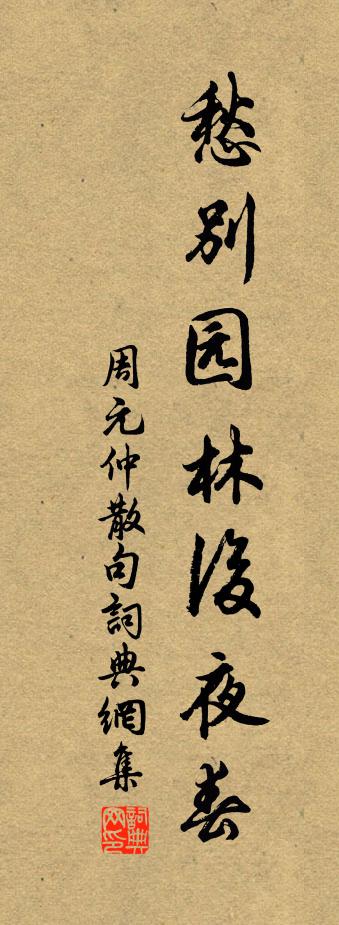 愁别园林後夜春
周元仲散句詞典網集
詞典网印